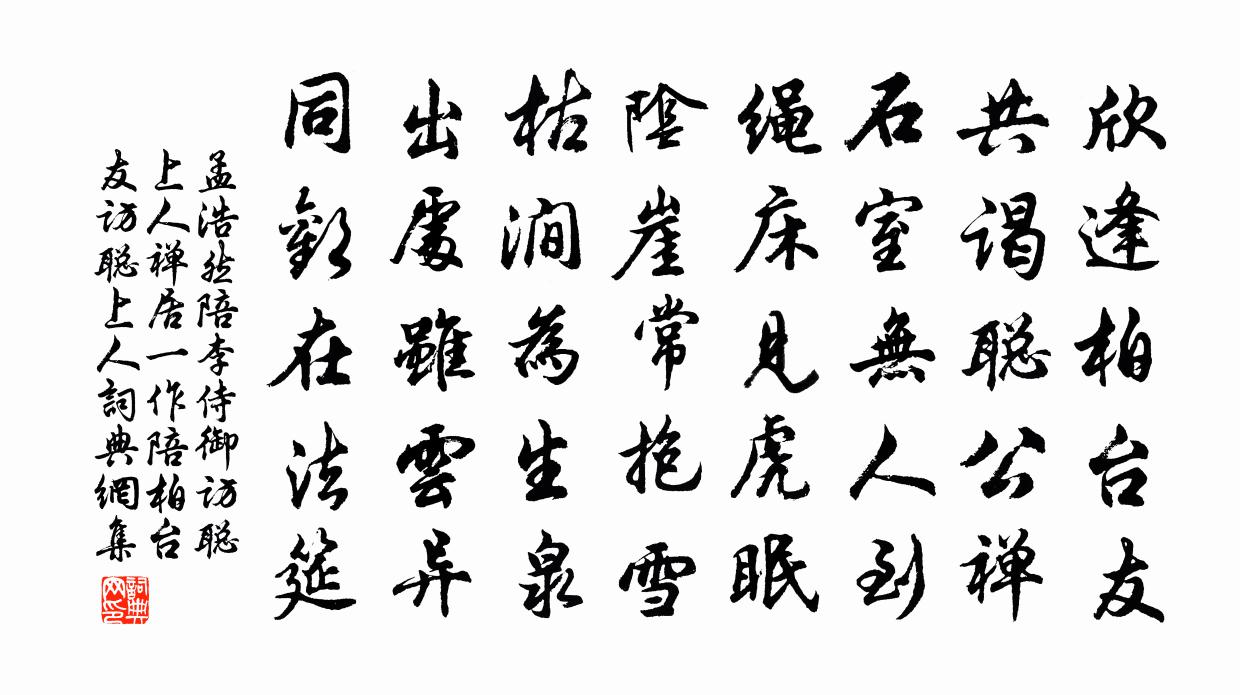 欣逢柏台友
共谒聪公禅
石室無人到
绳床見虎眠
陰崖常抱雪
枯澗為生泉
出處雖雲异
同歡在法筵
孟浩然陪李侍御访聪
上人禅居一作陪柏台
友访聪上人詞典網集
詞典網印